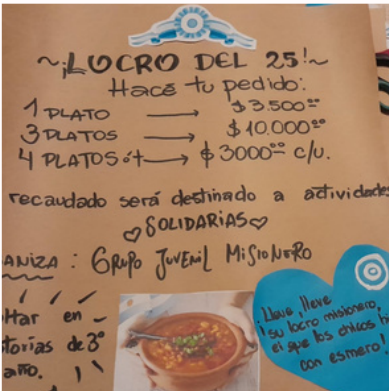 ~¡LOCRO DEL 25!~
Hacé tu pedido:
1 PLATO → $3.500⁰⁰
3 PLATOS → $10.000⁰⁰
4 PLATOS ó + → $3000⁰⁰ c/u.
recaudado será destinado a actividades
♡SOLIDARIAS♡
ANIZA: GRUPO JUVENIL MISIONERO
ltar en
torias de 3°
año.
Lleve, lleve
su locro misionero,
que los chicos
con esmero!